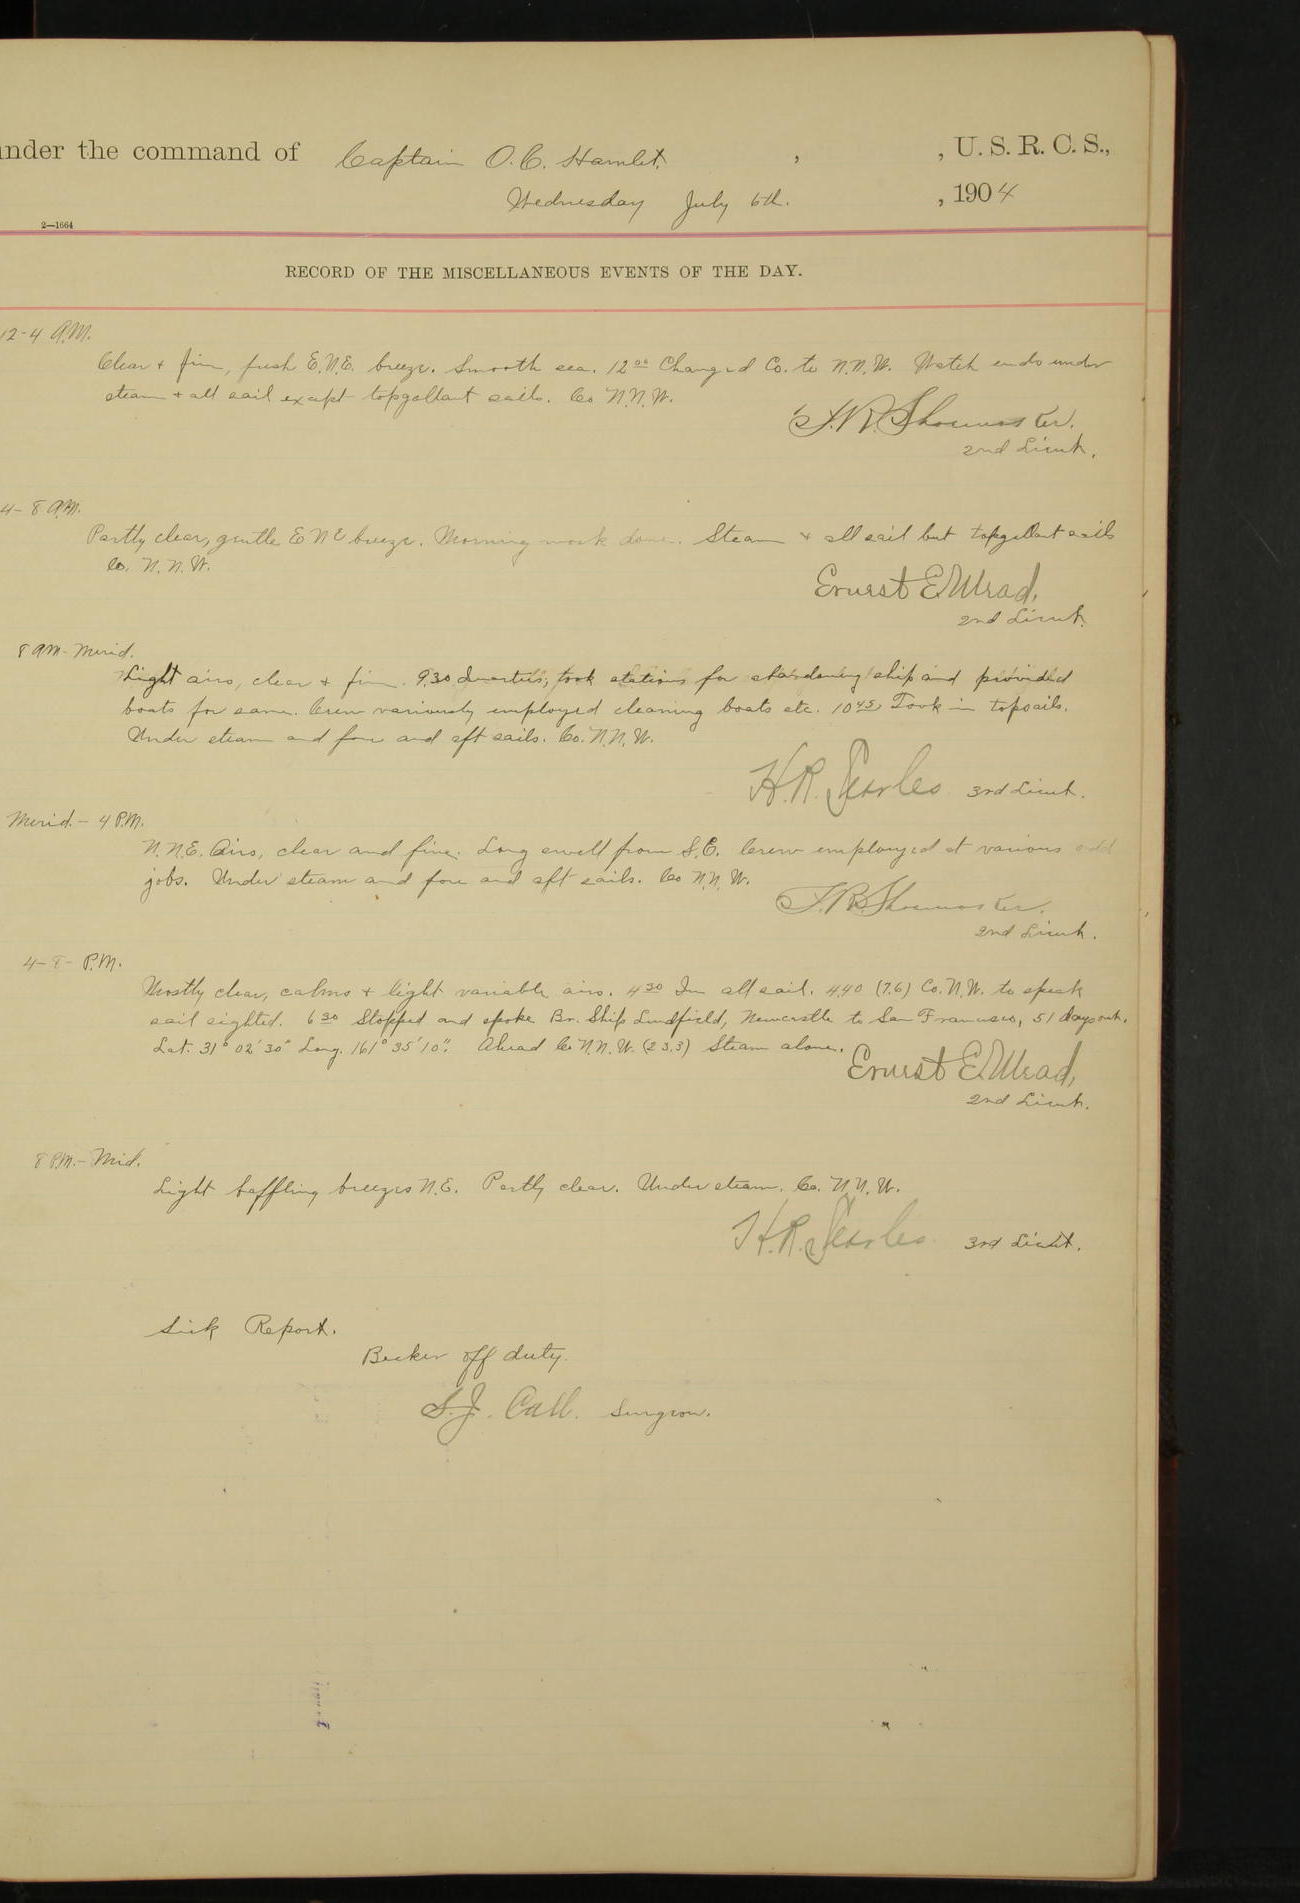 under the command of Captain O. C. Hamlet, , U. S. R. C. S.,
Wednesday July 6th. , 1904
2—1664
RECORD OF THE MISCELLANEOUS EVENTS OF THE DAY.
12-4 A.M.
Clear + fine, fresh E.N.E. breeze. Smooth sea. 12 00 Changed Co. to N.N.W. Watch ends under
steam + all sail except topgallant sails. Co N.N.W.
F.R. Shoemaker.
2nd Lieut.
4-8 A.M.
Partly clear, gentle E N E breeze. Morning work done. Steam + all sail but topgallant sails
Co. N. N. W.
Ernest E. Mead,
2nd Lieut.
8 AM- Merid.
Light airs, clear + fine. 9.30 Quarters, took stations for abandoning ship and provided
boats for same. Crew variously employed cleaning boats etc. 10 45 Took in topsails.
Under steam and fore and aft sails. Co. N.N.W.
H.R. Searles 3rd Lieut.
Merid. - 4 P.M.
N.N.E. Airs, clear and fine. Long swell from S.E. Crew employed at various odd
jobs. Under steam and fore and aft sails. Co N.N.W.
F.R. Shoemaker.
2nd Lieut.
4-8- P.M.
Mostly clear, calms + light variable airs. 4 30 In all sail. 4.40 (7.6) Co. N.W. to speak
sail sighted. 6 30 Stopped and spoke Br. Ship Lindfield, Newcastle to San Francisco, 51 days out.
Lat. 31° 02' 30" Long. 161° 35' 10". Ahead Co N.N.W. (23.3) Steam alone.
Ernest E. Mead,
2nd Lieut.
8 P.M.- Mid.
Light baffling breezes N.E. Partly clear. Under steam. Co. N.N.W.
H.R. Searles 3rd Lieut.
Sick Report.
Becker off duty.
S.J. Call. Surgeon.